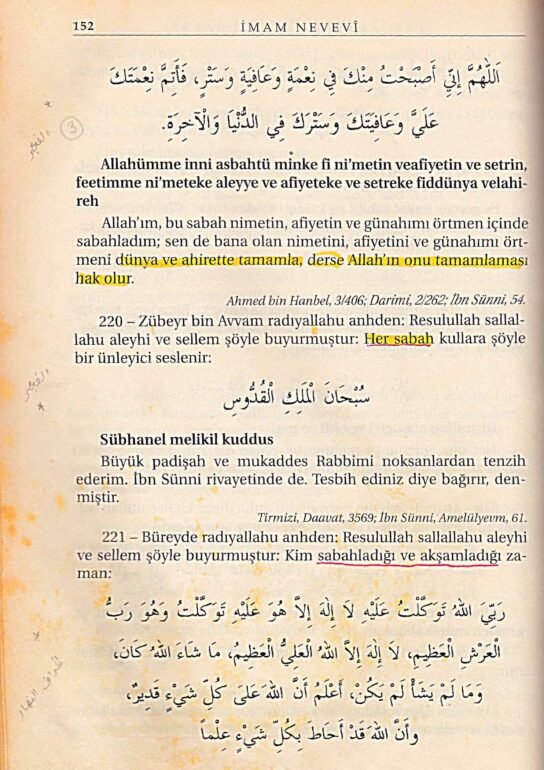 152 İMAM NEVEVÎ
اَللّٰهُمَّ إِنِّي أَصْبَحْتُ مِنْكَ فِي نِعْمَةٍ وَعَافِيَةٍ وَسَتْرٍ، فَأَتِمَّ نِعْمَتَكَ
عَلَيَّ وَعَافِيَتَكَ وَسَتْرَكَ فِي الدُّنْيَا وَالْآخِرَةِ.
3
الفجر
Allahümme inni asbahtü minke fi ni'metin veafiyetin ve setrin,
feetimme ni'meteke aleyye ve afiyeteke ve setreke fiddünya velahi-
reh
Allah'ım, bu sabah nimetin, afiyetin ve günahımı örtmen içinde
sabahladım; sen de bana olan nimetini, afiyetini ve günahımı ört-
meni dünya ve ahirette tamamla, derse Allah'ın onu tamamlaması
hak olur.
Ahmed bin Hanbel, 3/406; Darimi, 2/262; İbn Sünni, 54.
220 – Zübeyr bin Avvam radıyallahu anhden: Resulullah sallal-
lahu aleyhi ve sellem şöyle buyurmuştur: Her sabah kullara şöyle
bir ünleyici seslenir:
الفجر
سُبْحَانَ الْمَلِكِ الْقُدُّوسِ
Sübhanel melikil kuddus
Büyük padişah ve mukaddes Rabbimi noksanlardan tenzih
ederim. İbn Sünni rivayetinde de. Tesbih ediniz diye bağırır, den-
miştir.
Tirmizi, Daavat, 3569; İbn Sünni, Amelülyevm, 61.
221 – Büreyde radıyallahu anhden: Resulullah sallallahu aleyhi
ve sellem şöyle buyurmuştur: Kim sabahladığı ve akşamladığı za-
man:
رَبِّيَ اللّٰهُ تَوَكَّلْتُ عَلَيْهِ لَا إِلٰهَ إِلَّا هُوَ عَلَيْهِ تَوَكَّلْتُ وَهُوَ رَبُّ
الْعَرْشِ الْعَظِيمِ، لَا إِلٰهَ إِلَّا اللّٰهُ الْعَلِيُّ الْعَظِيمُ، مَا شَاءَ اللّٰهُ كَانَ،
وَمَا لَمْ يَشَأْ لَمْ يَكُنْ، أَعْلَمُ أَنَّ اللّٰهَ عَلَى كُلِّ شَيْءٍ قَدِيرٌ،
وَأَنَّ اللّٰهَ قَدْ أَحَاطَ بِكُلِّ شَيْءٍ عِلْماً
طرف النهار